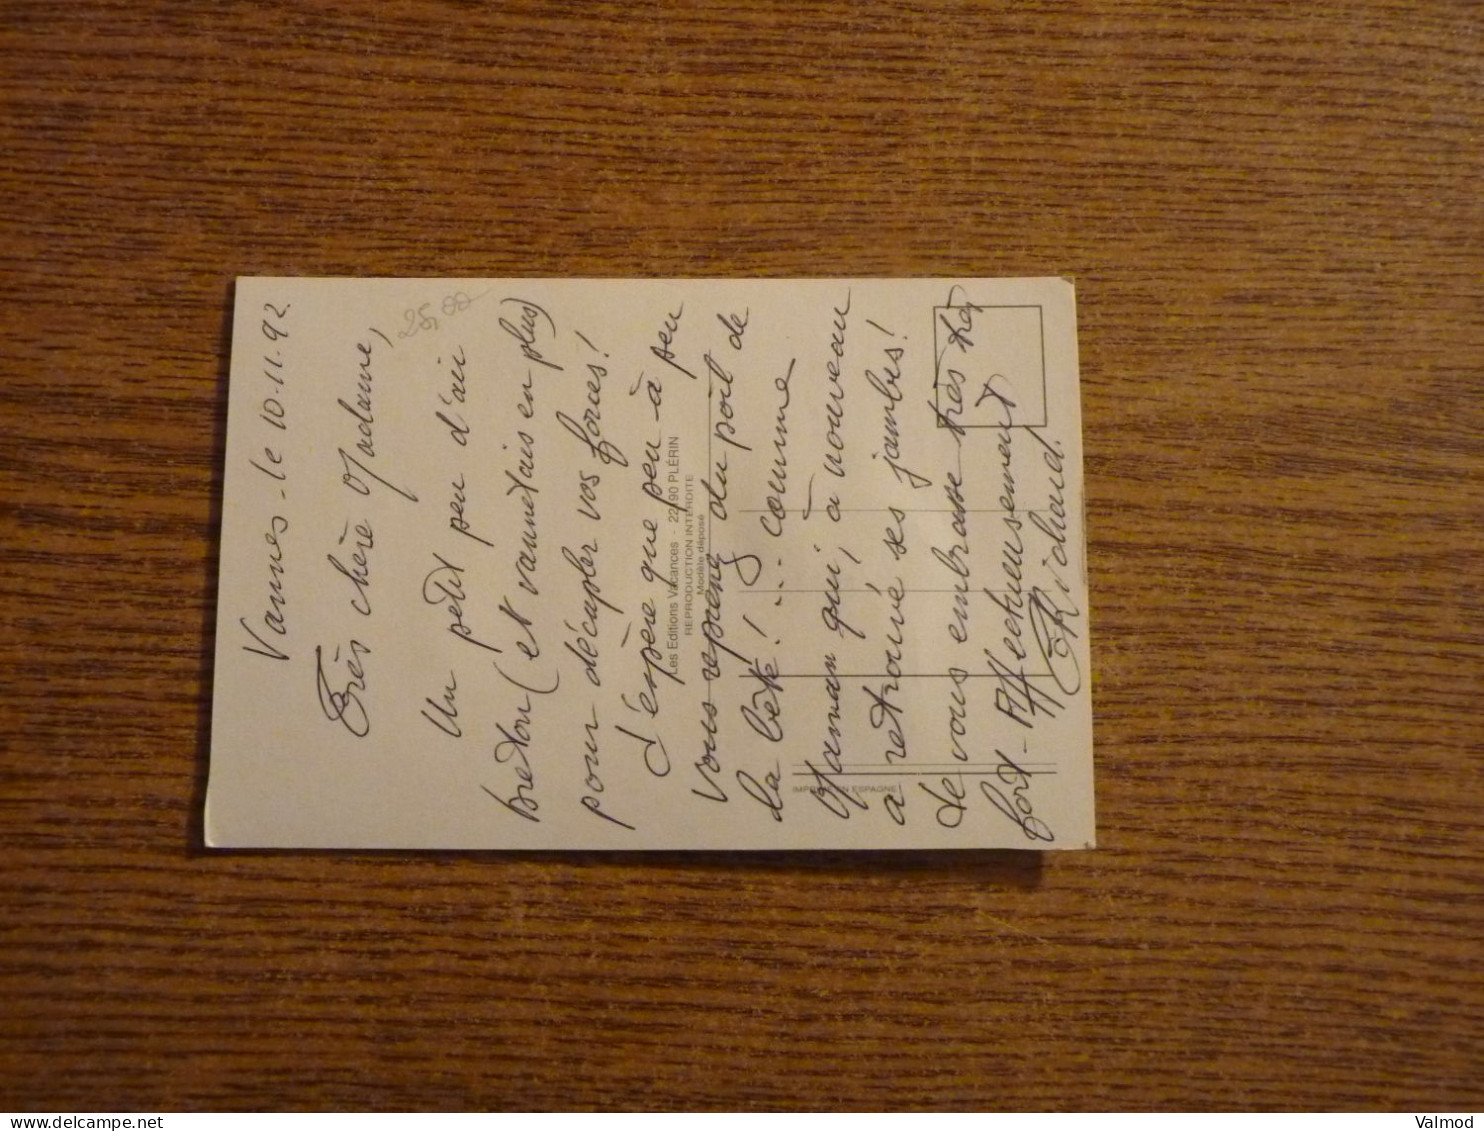 Vannes - le 10.11.92
25,00
Très chère Madame,
Un petit peu d'air
breton (et vannetais en plus)
pour décupler vos forces!
J'espère que peu à peu
Les Editions Vacances - 22190 PLÉRIN
REPRODUCTION INTERDITE
Modèle déposé
vous reprenez du poil de
la bête! ... comme
IMPRIMÉ EN ESPAGNE
Maman qui, à nouveau
a retrouvé ses jambes!
Je vous embrasse très très
fort - Affectueusement
Richard.
delcampe.net
Valmod